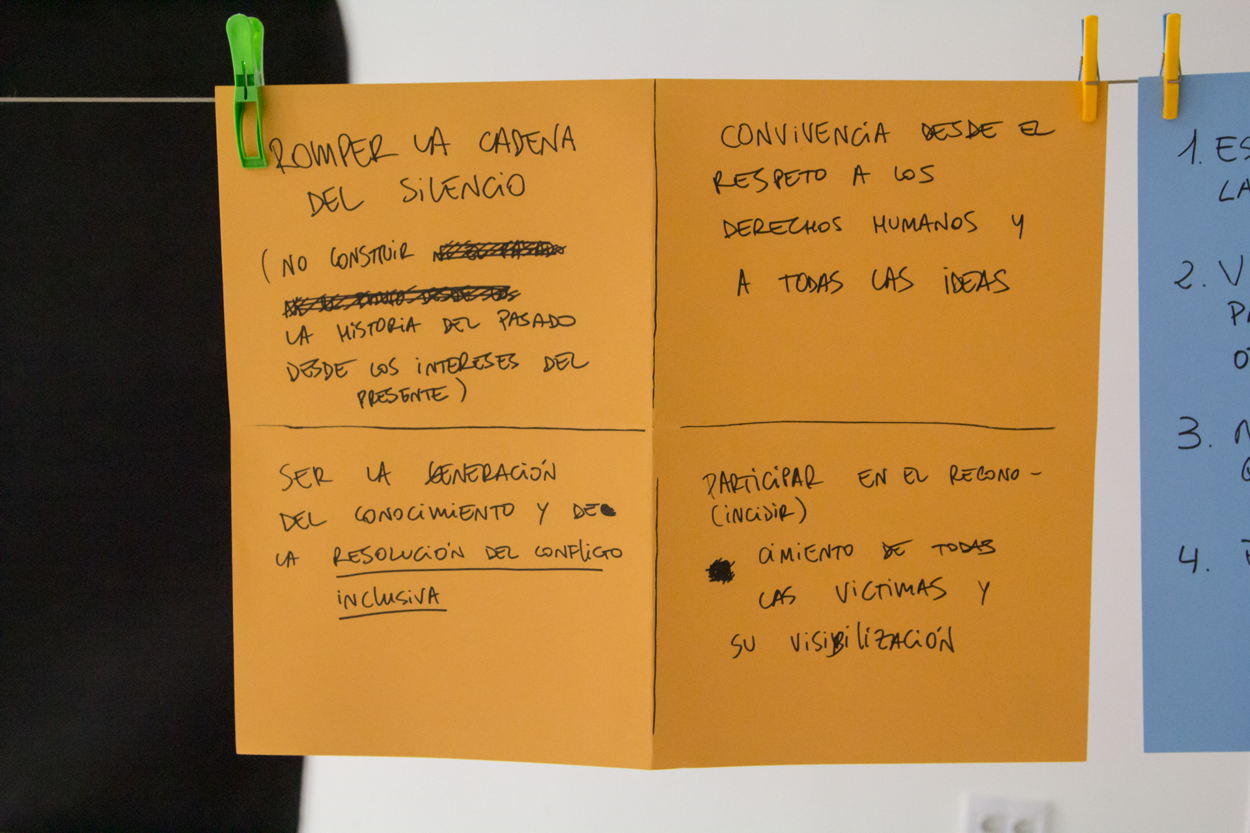 ROMPER LA CADENA
DEL SILENCIO
(NO CONSTRUIR
LA HISTORIA DEL PASADO
DESDE LOS INTERESES DEL
PRESENTE)
CONVIVENCIA DESDE EL
RESPETO A LOS
DERECHOS HUMANOS Y
A TODAS LAS IDEAS
SER LA GENERACIÓN
DEL CONOCIMIENTO Y DE
LA RESOLUCIÓN DEL CONFLICTO
INCLUSIVA
PARTICIPAR EN EL RECONO-
(INCIDIR)
CIMIENTO DE TODAS
LAS VICTIMAS Y
SU VISIBILIZACIÓN
1. ES
LA
2. V
PA
3. N
4.